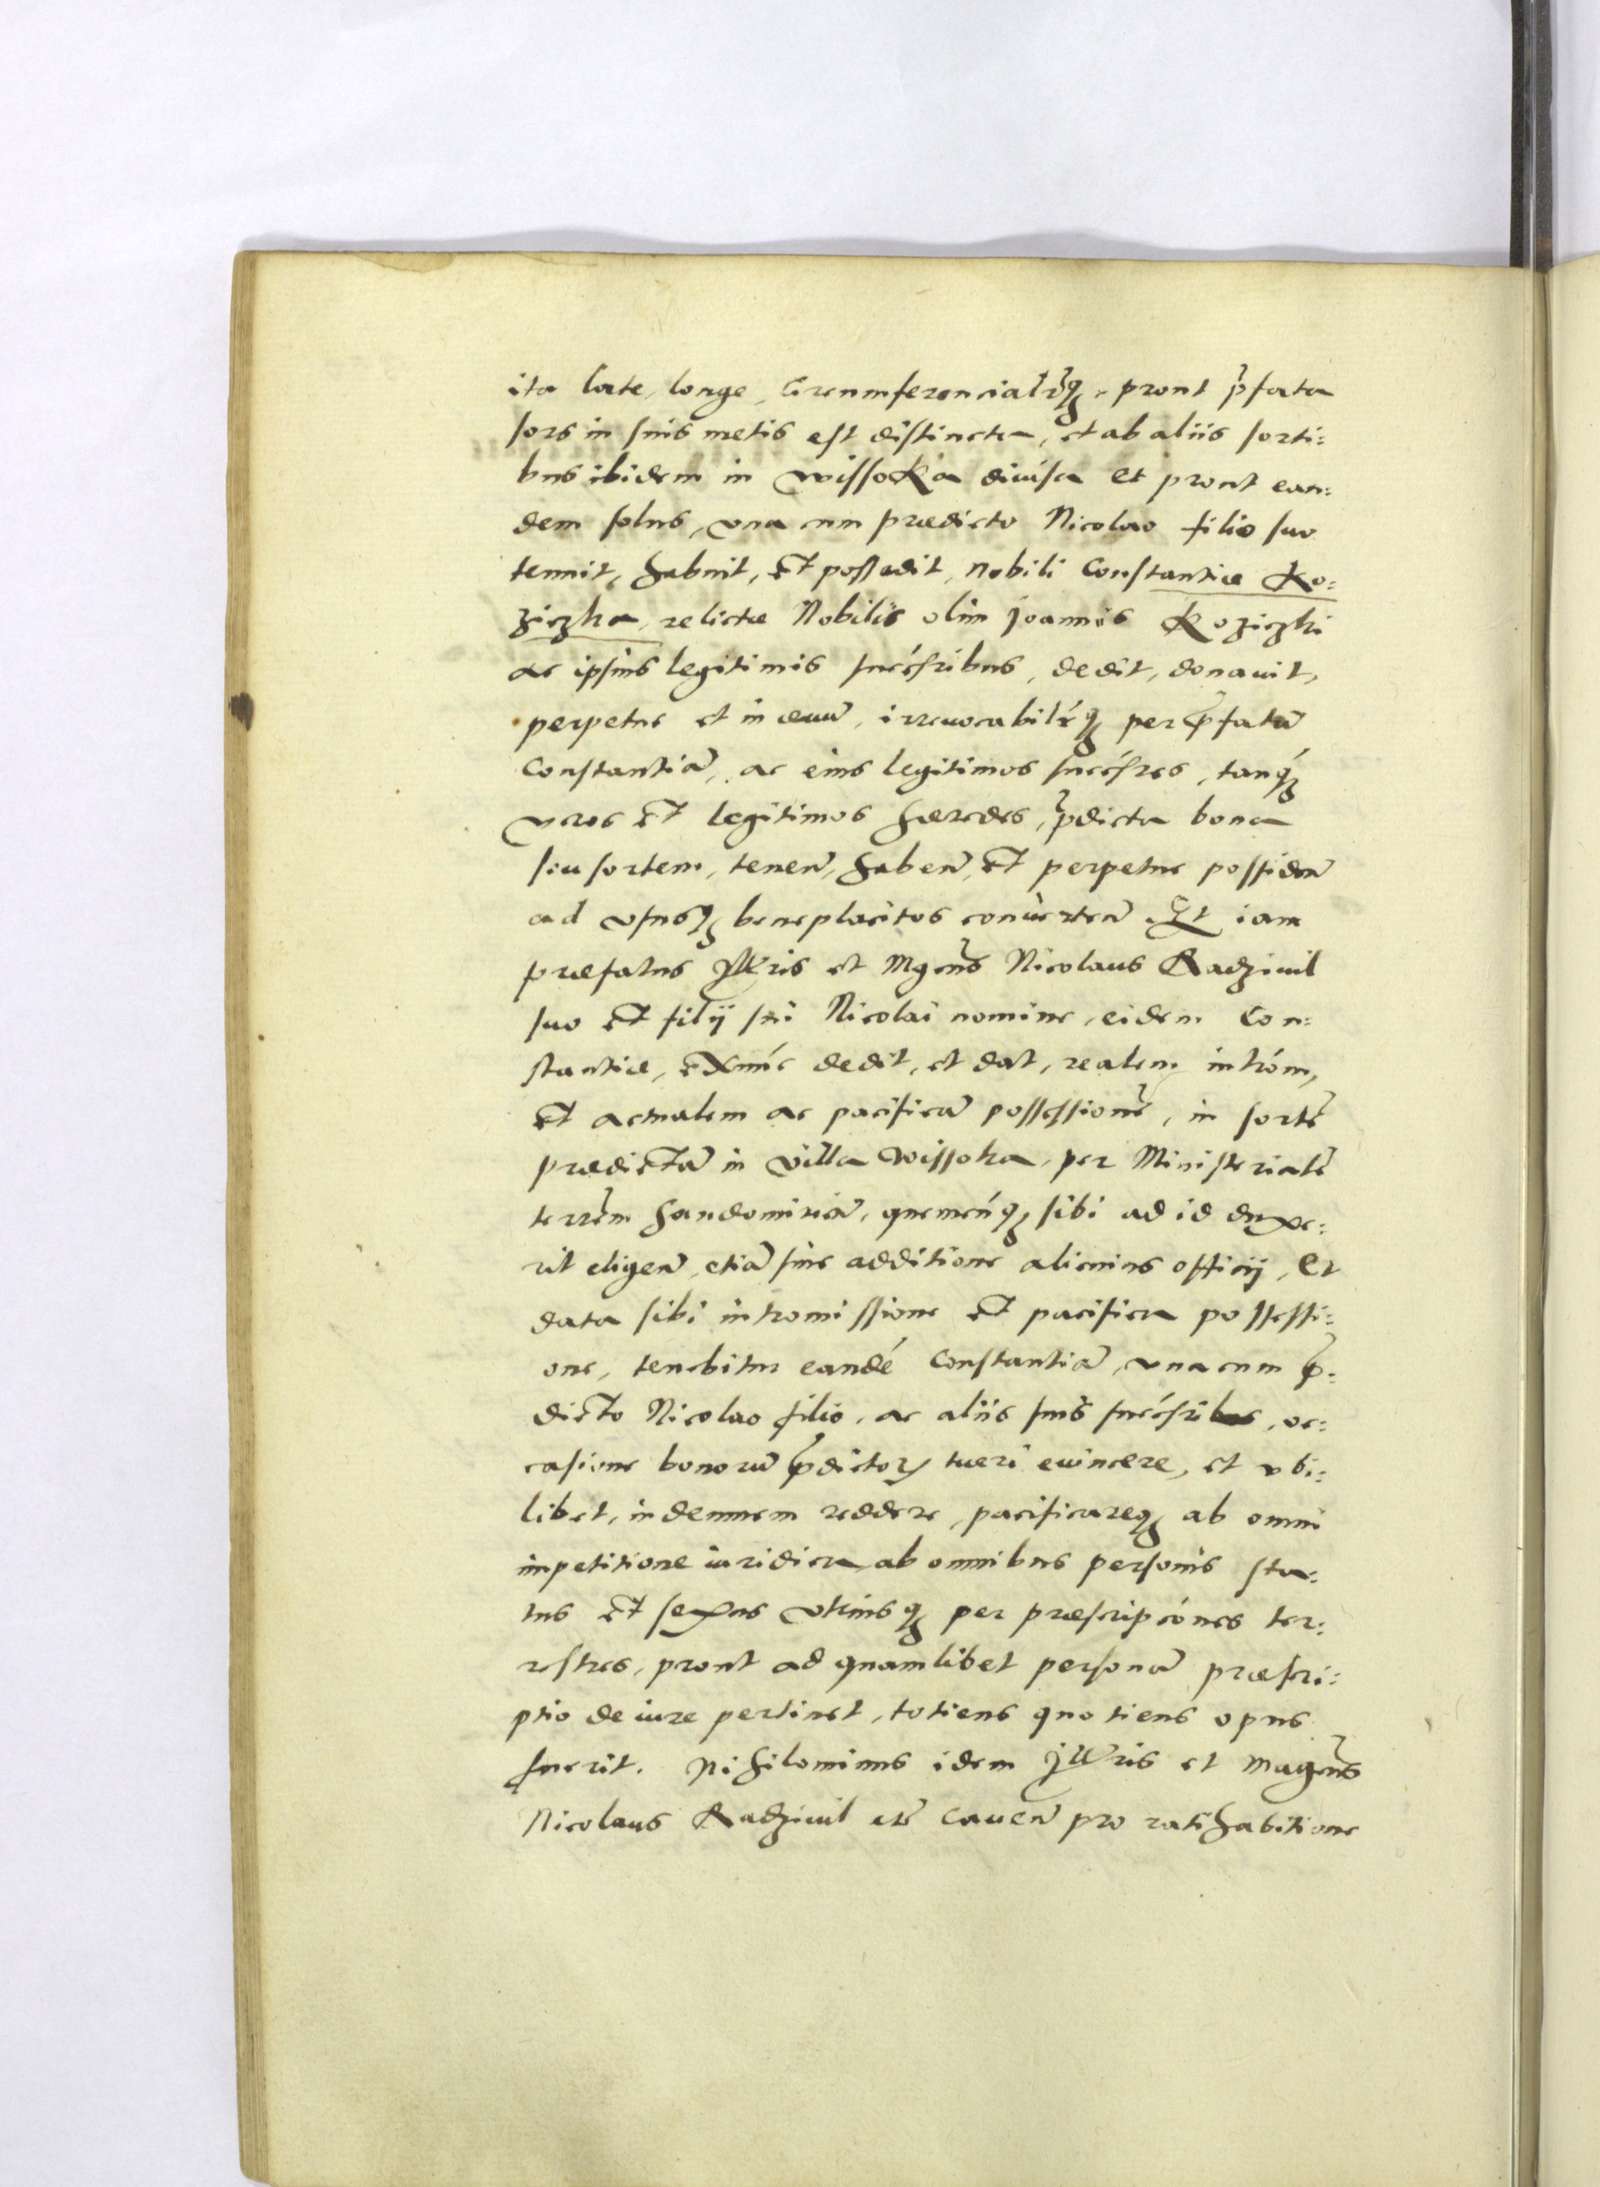 ita late, longe, Circumferencialrq(ue), prout p̃fata
sors in suis metis est distincta, et ab aliis sorti:
bus ibidem in Wissoka diuisa Et prout ean:
dem solus, vna cum prædicto Nicolao filio suo
tenuit, habuit, et possedit, nobili Constantiæ Ko:
ziczka, relictæ Nobilis olim Joannis Koziczki
ac ipsius legitimis succ̃sribus, dedit, donauit,
perpetue et in æuũ, irreuocabilr̃q(ue) per p̃fatã
Constantiã, ac eius legitimos succ̃sres, tanq̃
veros et legitimos hæredes, p̃dicta bona
siu sortem, tenen̄, haben̄, et perpetue possiden̄
ad vsusq(ue) beneplacitos conuerten̄. Et iam
præfatus Jllris et Mgcus Nicolaus Radziuil
suo et filij sui Nicolai nomine, eidem Con:
stantiæ, exnũc dedit, et dat, realem intróm,
et actualem ac pacificã possessionẽ, in sortẽ
prædictã in villa Wissoka, per Ministerialẽ
terrẽm Sandomirien̄, quemcũq(ue) sibi ad id duxe:
rit eligen̄, etiã sine additione alicuius officij, Et
data sibi intromissione et pacifica possessi:
one, tenebitur eandẽ Constantiã, vna cum p̃:
dicto Nicolao filio, ac aliis suis succ̃sribus, oc:
casione bonorũ p̃dictoꝝ tueri euincere, et vbi:
libet, indemnem reddere, pacificareq(ue) ab omni
impetitione iuridica, ab omnibus personis sta:
tus et sexus vtriusq(ue) per præscripcónes ter:
restres, prout ad quamlibet personã præscri:
ptio de iure pertinet, totiens quotiens opus
fuerit. Nihilominus idem Jllris et Magcus
Nicolaus Radziuil etc̃ cauen̄ pro ratihabitione